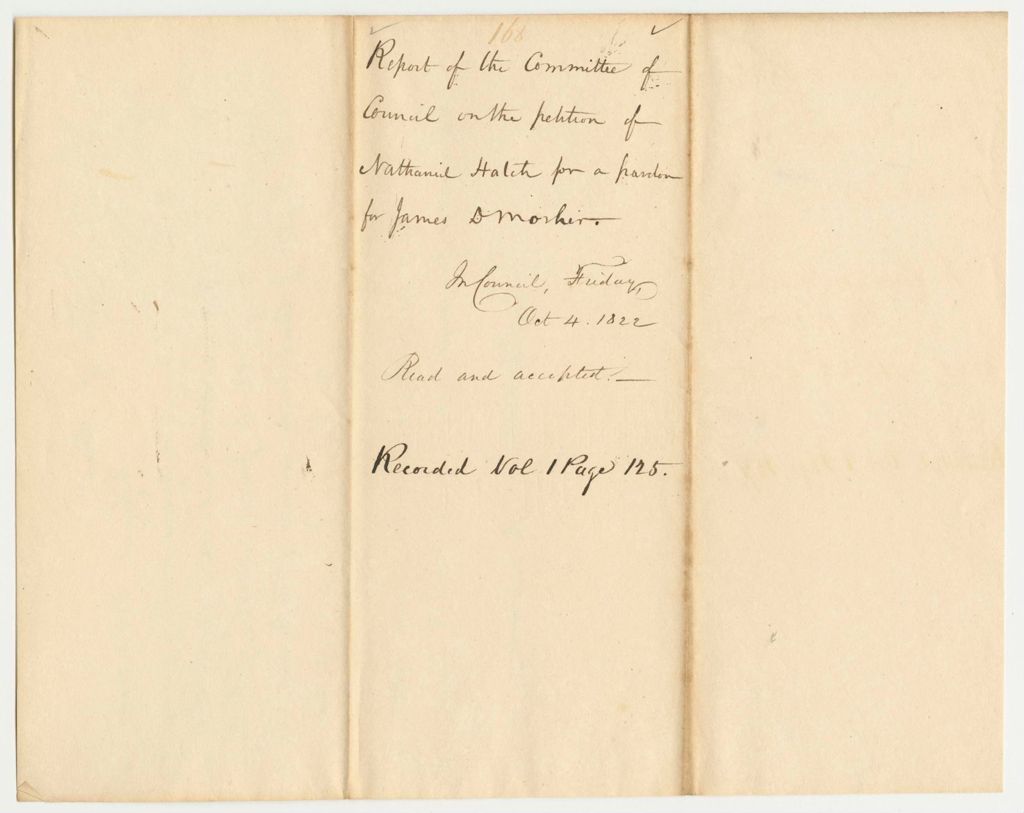 168
Report of the Committee of
Council on the petition of
Nathaniel Hatch for a pardon
for James D Mosher.
In Council, Friday,
Oct 4. 1822
Read and accepted.
Recorded Vol 1 Page 125.